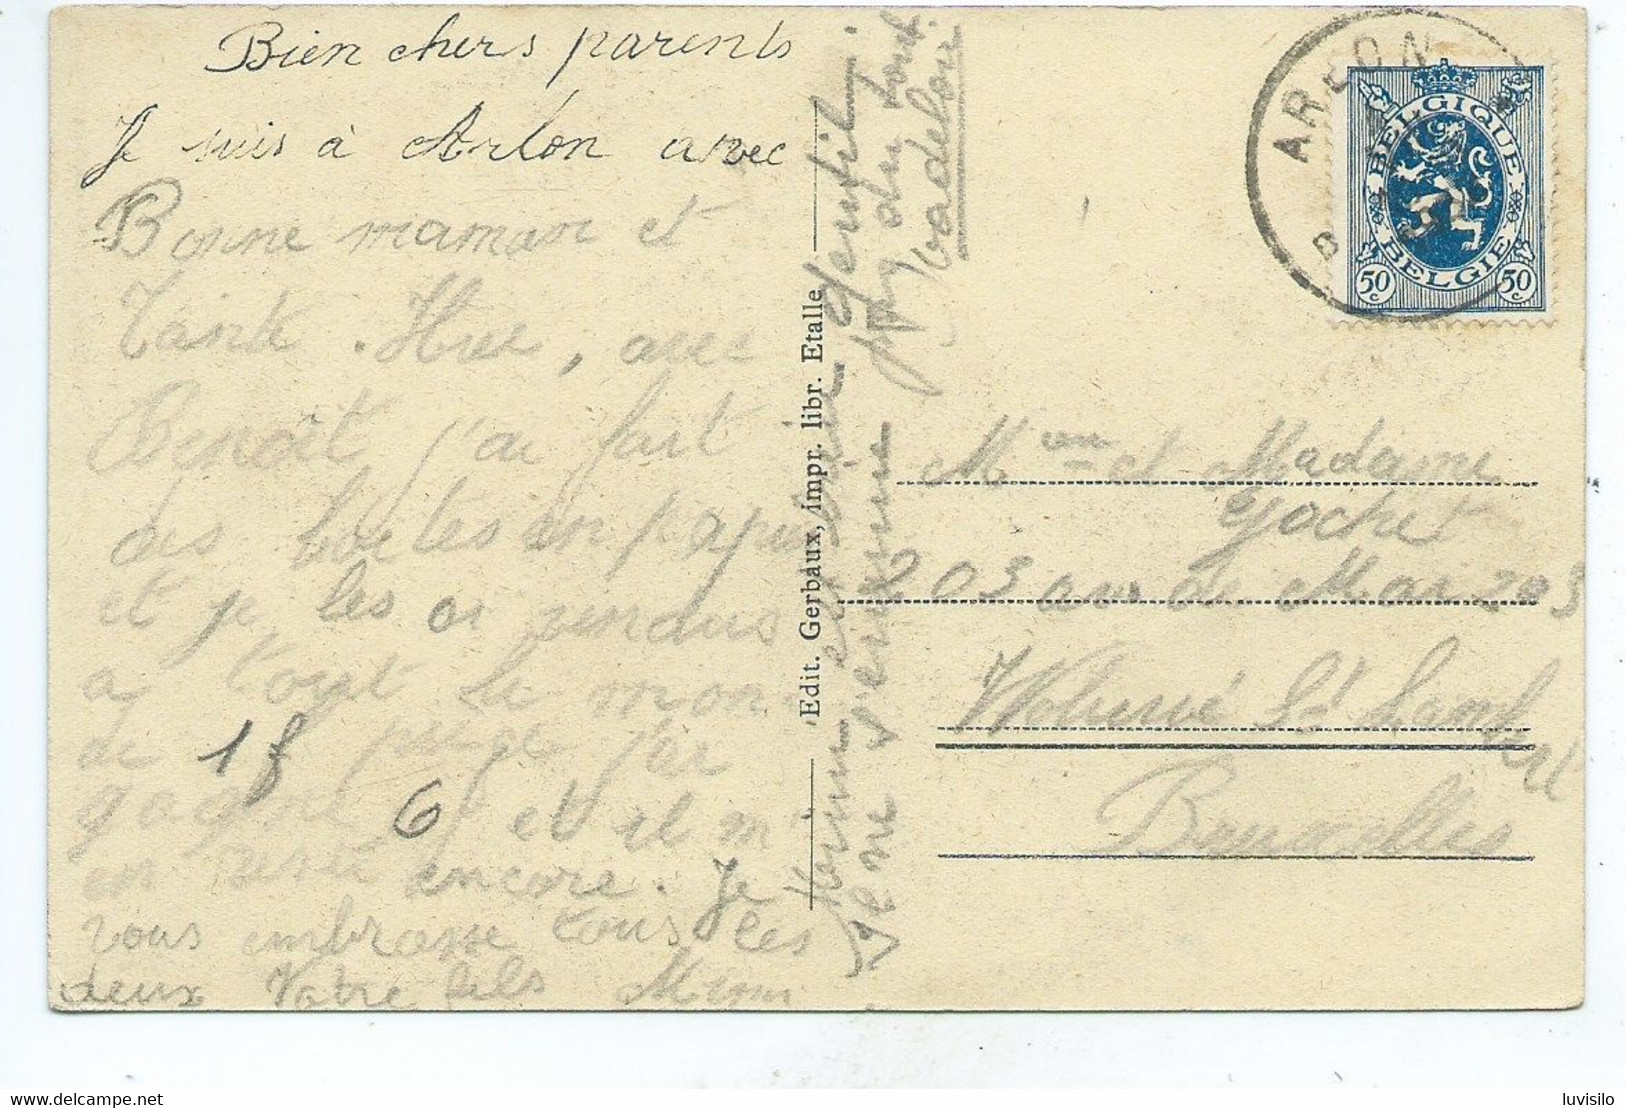 Bien chers parents
Je suis à Arlon avec
Bonne maman et
Tante . Hue, avec
Benoît j'ai fait
des boites en papier
et je les ai vendus
a tout le mon
de 1f pièce j'ai
gagné 6 f et il m'
en reste encore. Je
vous embrasse tous les
deux Votre fils Mimi
Edit. Gerbaux, impr. libr. Etalle
gentil
du tout
ARLON
BELGIQUE
BELGIE
50 c
50 c
et Madame
Gochet
203 av. de Mai 203
Woluwé St Lambert
Bruxelles
luvisilo